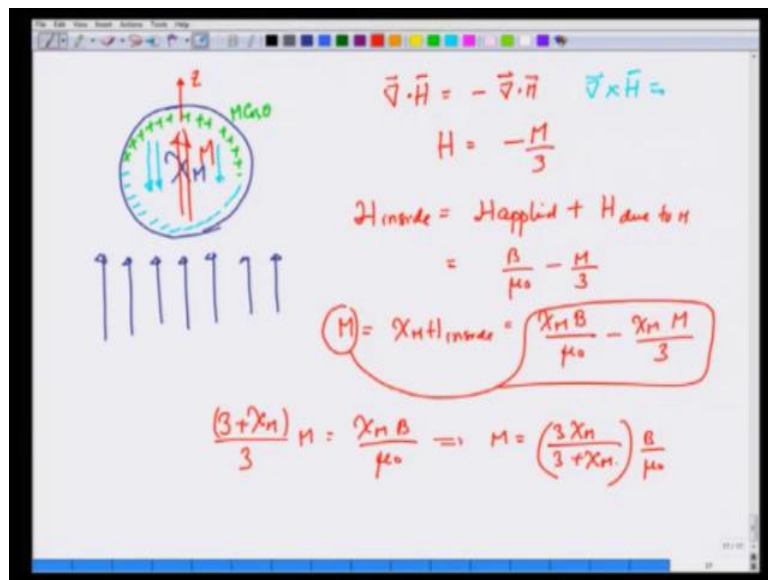 File Edit View Insert Actions Tools Help
z
M cos θ
M
χ_M
∇⃗·H⃗ = − ∇⃗·M⃗    ∇⃗×H⃗ =
H = − M/3
H inside = H applied + H due to M
= B/μ₀ − M/3
M = χ_M H inside = χ_M B/μ₀ − χ_M M/3
(3+χ_M)/3 M = χ_M B/μ₀ ⇒ M = (3χ_M/(3+χ_M)) B/μ₀